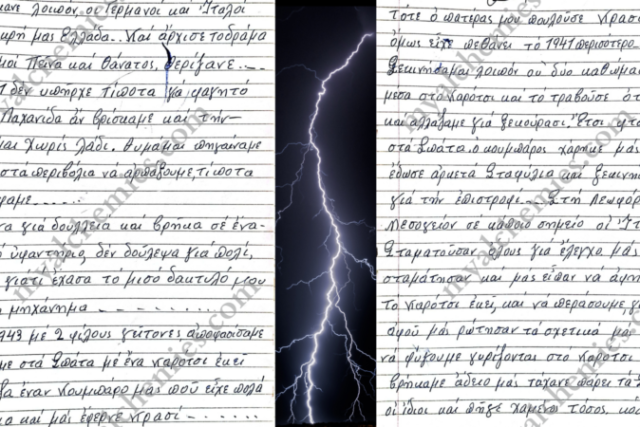 λοιπόν οι Γερμανοί και Ιταλοί
μας Ελλάδα.. Και άρχισε το δράμα
Πείνα και θάνατος, θερίζανε....
δεν υπήρχε τίποτα γιά φαγητό
Λαχανίδα αν βρίσκαμε και την
και χωρίς λάδι. θυμάμαι πηγαίναμε
στα περιβόλια νά αρπάξουμε, τίποτα
γιά δουλειά και βρήκα σέ ένα-
υφαντήριο, δέν δούλεψα γιά πολύ,
γιατί έχασα το μισό δακτυλό μου
μηχάνημα
943 μέ 2 φίλους γείτονες αποφασίσαμε
στά Σπάτα μέ ένα καρότσι εκεί
έναν κουμπάρο μας πού είχε πολά
και μάς έφερνε κρασί
τότε ο πατέρας μου πουλούσε κρασί
όμως είχε πεθάνει το 1941 περισσότερο
Ξεκινήσαμε λοιπόν οι δυο καθόμασ
μεσα στο καρότσι και το τραβούσε
και αλλάζαμε γιά ξεκούραση. Έτσι
στά Σπάτα. ο κουμπάρος χάρηκε μας
έδωσε αρκετά σταφύλια και ξεκινή
γιά την επιστροφή. Στή λεωφόρ
Μεσογείων σε κάποιο σημείο οι Ιτ
σταματούσαν όλους γιά έλεγχο. μάς
σταμάτησαν και μας είπαν νά αφή
το καρότσι εκεί, και νά περάσουμε γ
αφού μάς ρώτησαν τά σχετικά μάς
νά φύγουμε γυρίζοντας στο καρότσι
βρήκαμε άδειο μάς τάχανε πάρει τά
οι ίδιοι και πήγε χαμένος τόσος, κό
myalchemies.com